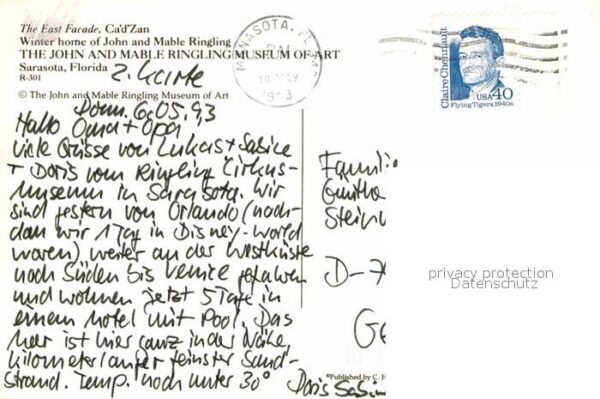 The East Facade, Ca'd'Zan
Winter home of John and Mable Ringling
THE JOHN AND MABLE RINGLING MUSEUM OF ART
Sarasota, Florida
R-301
2. Karte
© The John and Mable Ringling Museum of Art
Donn. 6.05.93
Hallo Oma + Opa
viele Grüsse von Lukas + Sabine
+ Doris vom Ringling Cirkus-
museum in Sarasota. Wir
sind gestern von Orlando (nach-
dem wir 1 Tag in Disney-World
waren) weiter an der Westküste
nach Süden bis Venice gefahren
und wohnen jetzt 5 Tage in
einem Motel mit Pool. Das
Meer ist hier ganz in der Nähe,
kilometerlanger feinster Sand-
strand. Temp. noch unter 30°
Doris Sabin
MANASOTA, FL
PM
1993
Claire Chennault
USA 40
Flying Tigers, 1940s
Famili
Günthe
Stein
D-7
Ge
privacy protection
Datenschutz
©Published by C. H